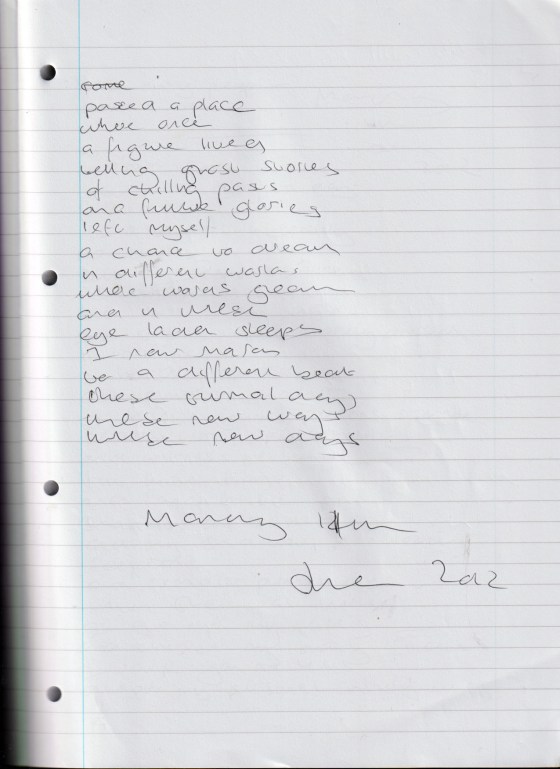 passed a place
where once
a figure lives
telling ghost stories
of chilling pasts
and future glories
left myself
a chance to dream
in different worlds
where words gleam
and in these
eye laden sleeps
I now march
to a different beat
these autumnal days
these new ways
these new days
Monday 18th
June 2012